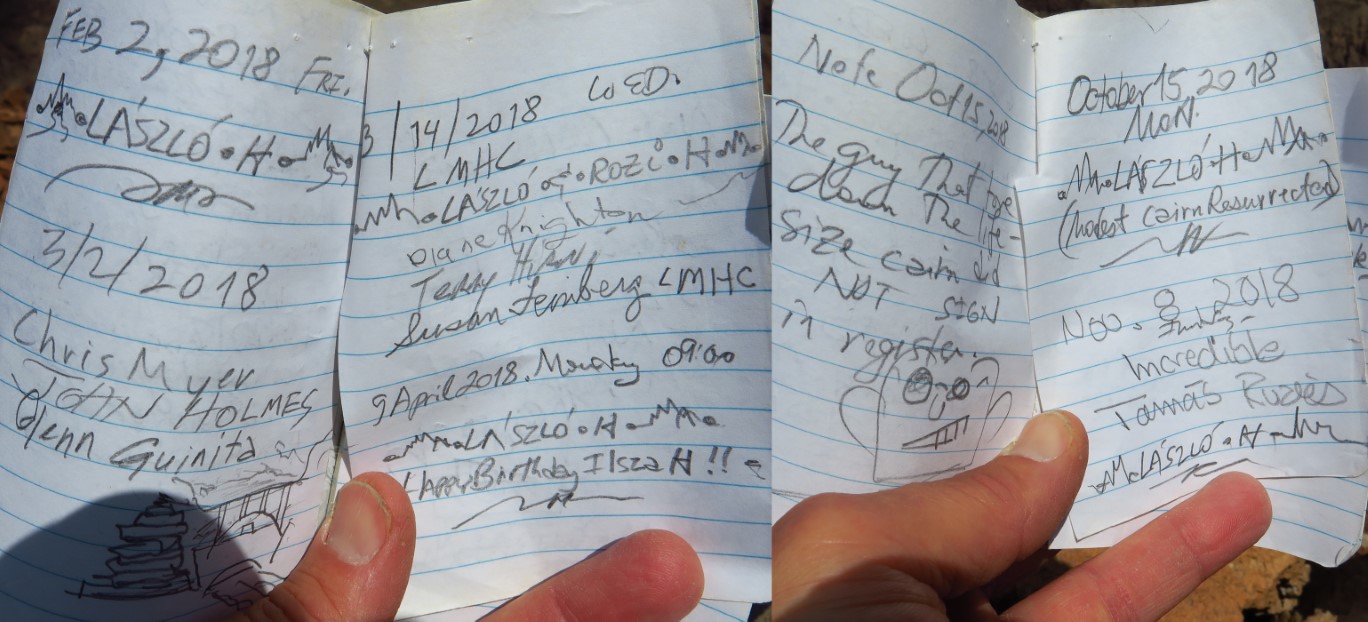 FEB 2, 2018 FRI.
LÁSZLÓ • H •
3/2/2018
Chris Myer
JOHN HOLMES
Glenn Guinita
3/14/2018 WED.
LMHC
LÁSZLÓ ROZI • H •
Diane Knighton
Terry
Susan LMHC
9 April 2018. Monday 09:00
LÁSZLÓ • H •
HAppy Birthday Ilsza H!!
Note Oct 15, 2018
The guy That tore
down The life-
size cairn did
NOT SIGN
in register.
October 15, 2018
MON.
LÁSZLÓ • H •
(Modest cairn Resurrected)
Nov. 8, 2018
Incredible
Tamás
LÁSZLÓ • H •